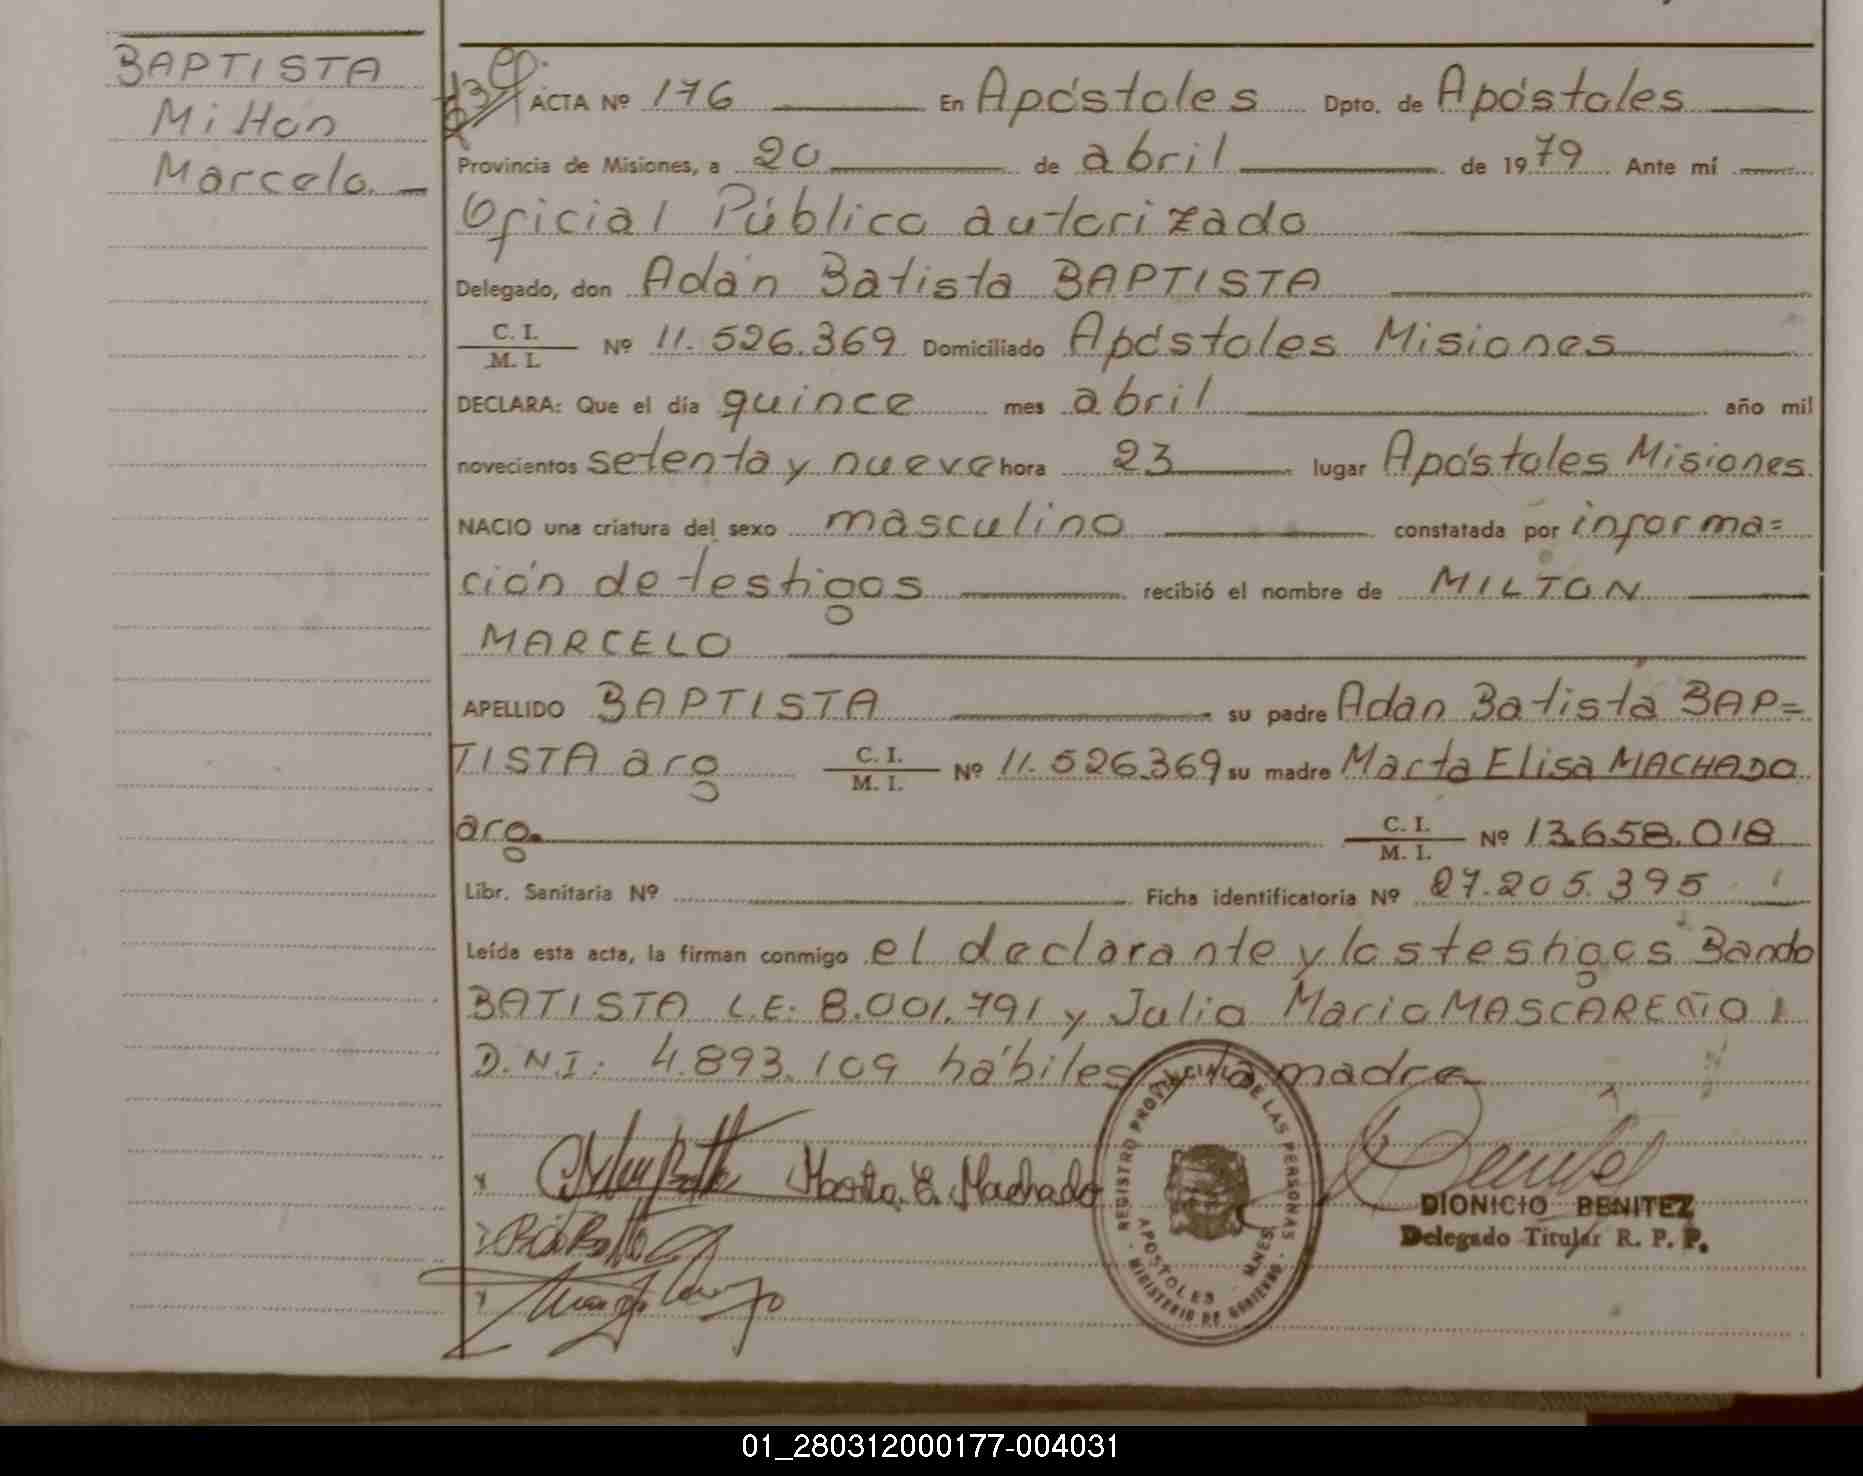 BAPTISTA
Milton
Marcelo.
ACTA Nº 176 En Apóstoles Dpto. de Apóstoles
Provincia de Misiones, a 20 de abril de 1979 Ante mí
Oficial Público autorizado
Delegado, don Adán Batista BAPTISTA
C. I.
M. I. Nº 11.526.369 Domiciliado Apóstoles Misiones
DECLARA: Que el día quince mes abril año mil
novecientos setenta y nueve hora 23 lugar Apóstoles Misiones
NACIO una criatura del sexo masculino constatada por informa=
ción de testigos recibió el nombre de MILTON
MARCELO
APELLIDO BAPTISTA su padre Adan Batista BAP=
TISTA arg C. I.
M. I. Nº 11.526.369 su madre Marta Elisa MACHADO
arg. C. I.
M. I. Nº 13.658.018
Libr. Sanitaria Nº Ficha identificatoria Nº 27.205.395
Leída esta acta, la firman conmigo el declarante y los testigos Bando
BATISTA L.E. 8.001.791 y Julio Mario MASCAREÑO
D.N.I. 4.893.109 hábiles y la madre
Marta E. Machado
REGISTRO PROVINCIAL DE LAS PERSONAS
APOSTOLES MNES.
MINISTERIO DE GOBIERNO
DIONICIO BENITEZ
Delegado Titular R. P. P.
01_280312000177-004031